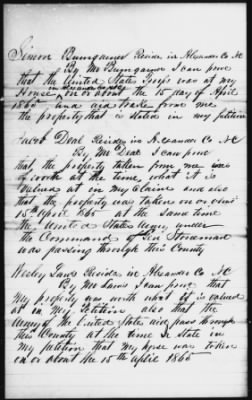 Simon Bumgarner Resides in Alexander Co NC
By Mr Bumgarner I can prove
that the United States Troops was at my
House on or about the 15 day of April
1865 and did take from me
the property that is stated in my petition
Jacob Deal Resides in Alexander Co NC
By Mr Deal I can prove
that the property taken from me was
worth at the time what it is
valued at in my Claim and also
that the property was taken on or about
15th April 1865 at the same time
the United States Army under
the Command of Gen Stoneman
was passing through this County
Wesley Laws Resides in Alexander Co NC
By Mr Laws I can prove that
my property was worth what it is valued
at in my Petition also that the
Army of the United States did pass through
this County at the time I state in
my petition that my horse was taken
on or about the 15th April 1865